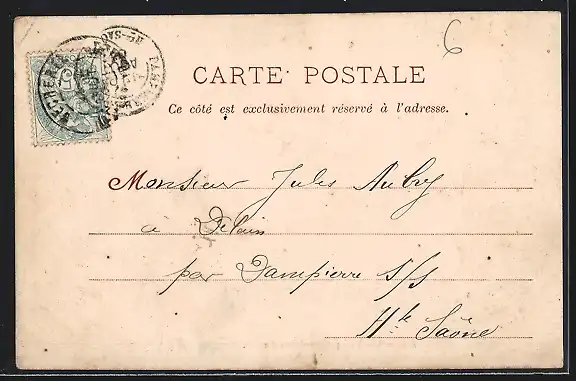 6
CARTE POSTALE
Ce côté est exclusivement réservé à l'adresse.
Monsieur Jules Aubry
à Delain
par Dampierre s/s
Hte Saône